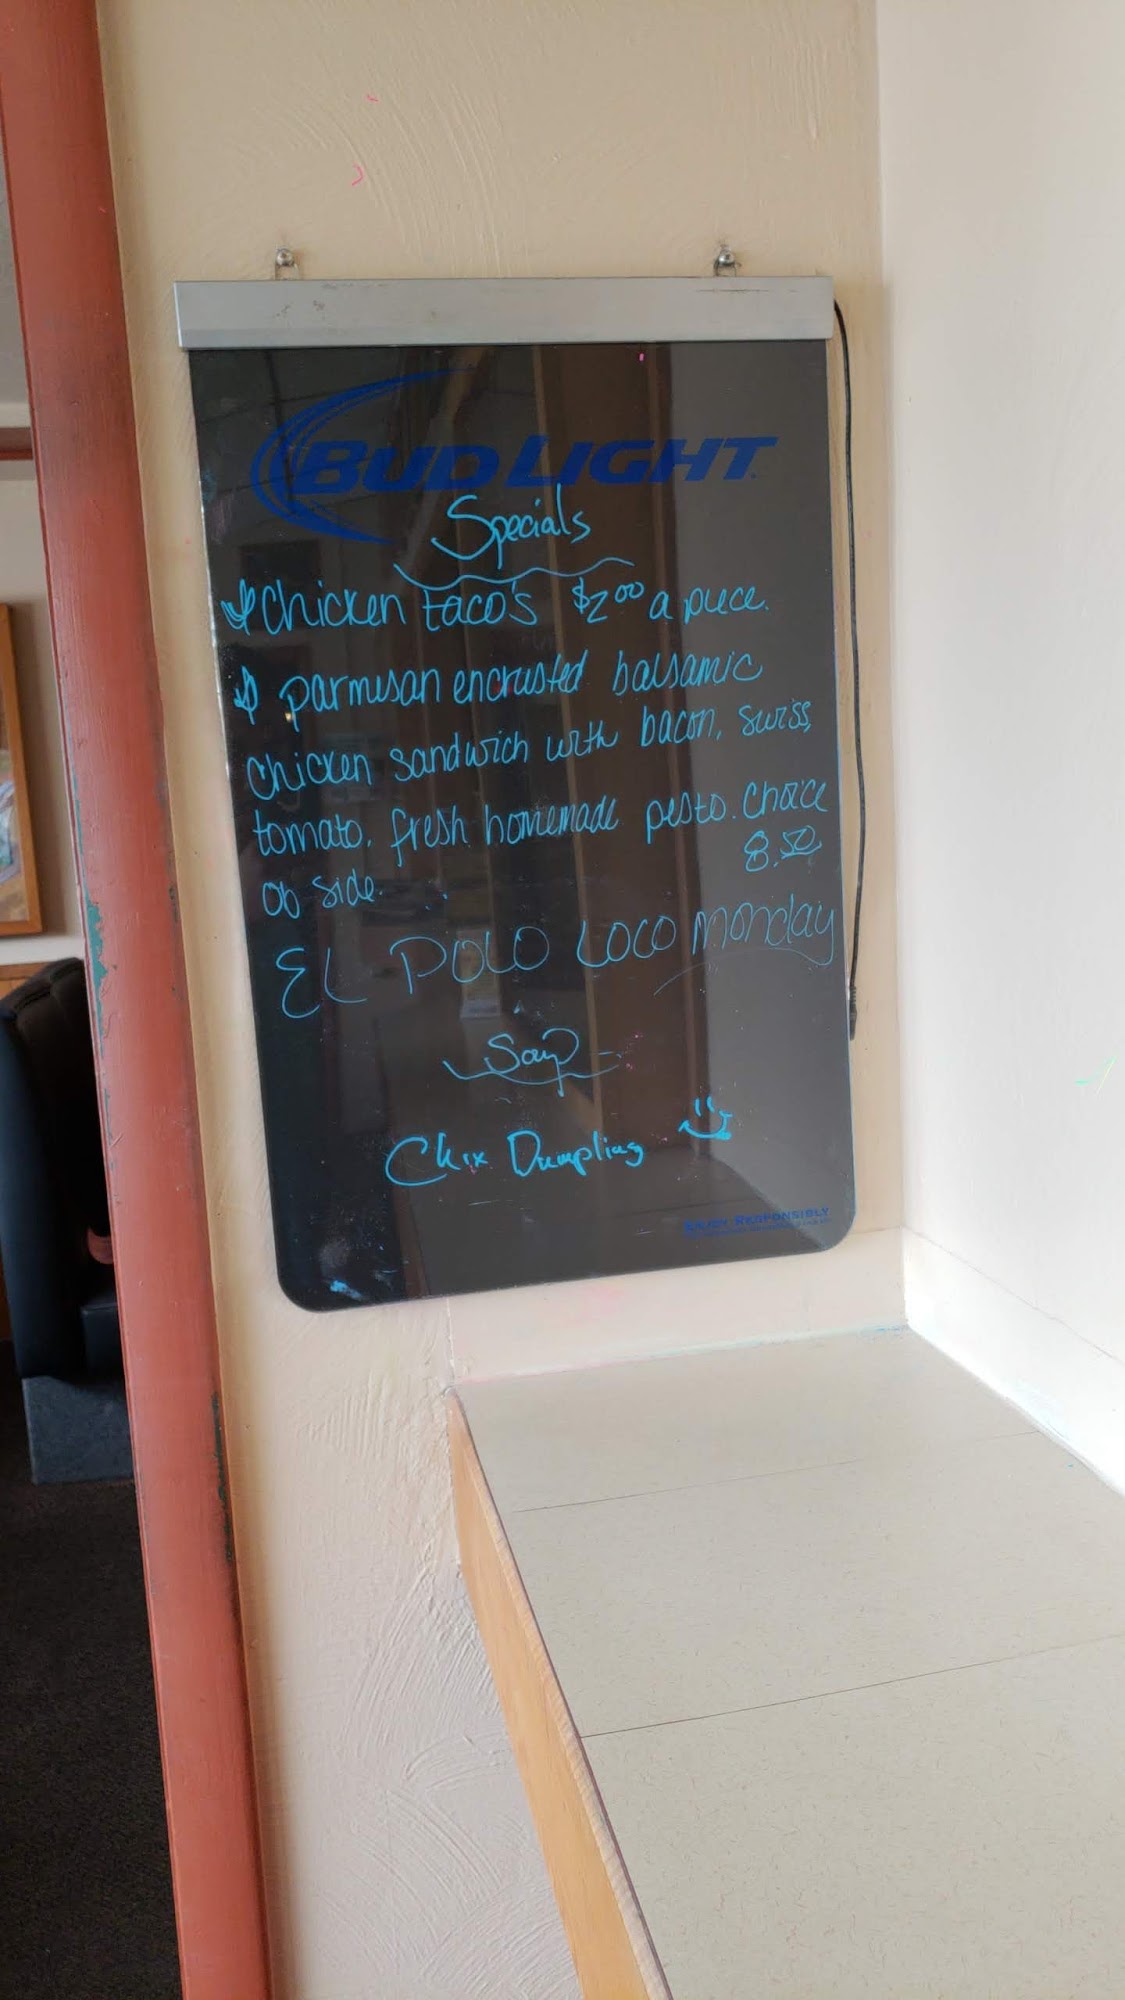 BUD LIGHT
Specials
Chicken taco's $2.00 a piece.
parmisan encrusted balsamic
chicken sandwich with bacon, swiss,
tomato, fresh homemade pesto. choice
of side. 8.50
EL POLO LOCO monday
Soup
Chix Dumpling
ENJOY RESPONSIBLY